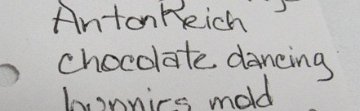 Anton Reich
chocolate dancing
bunnies mold